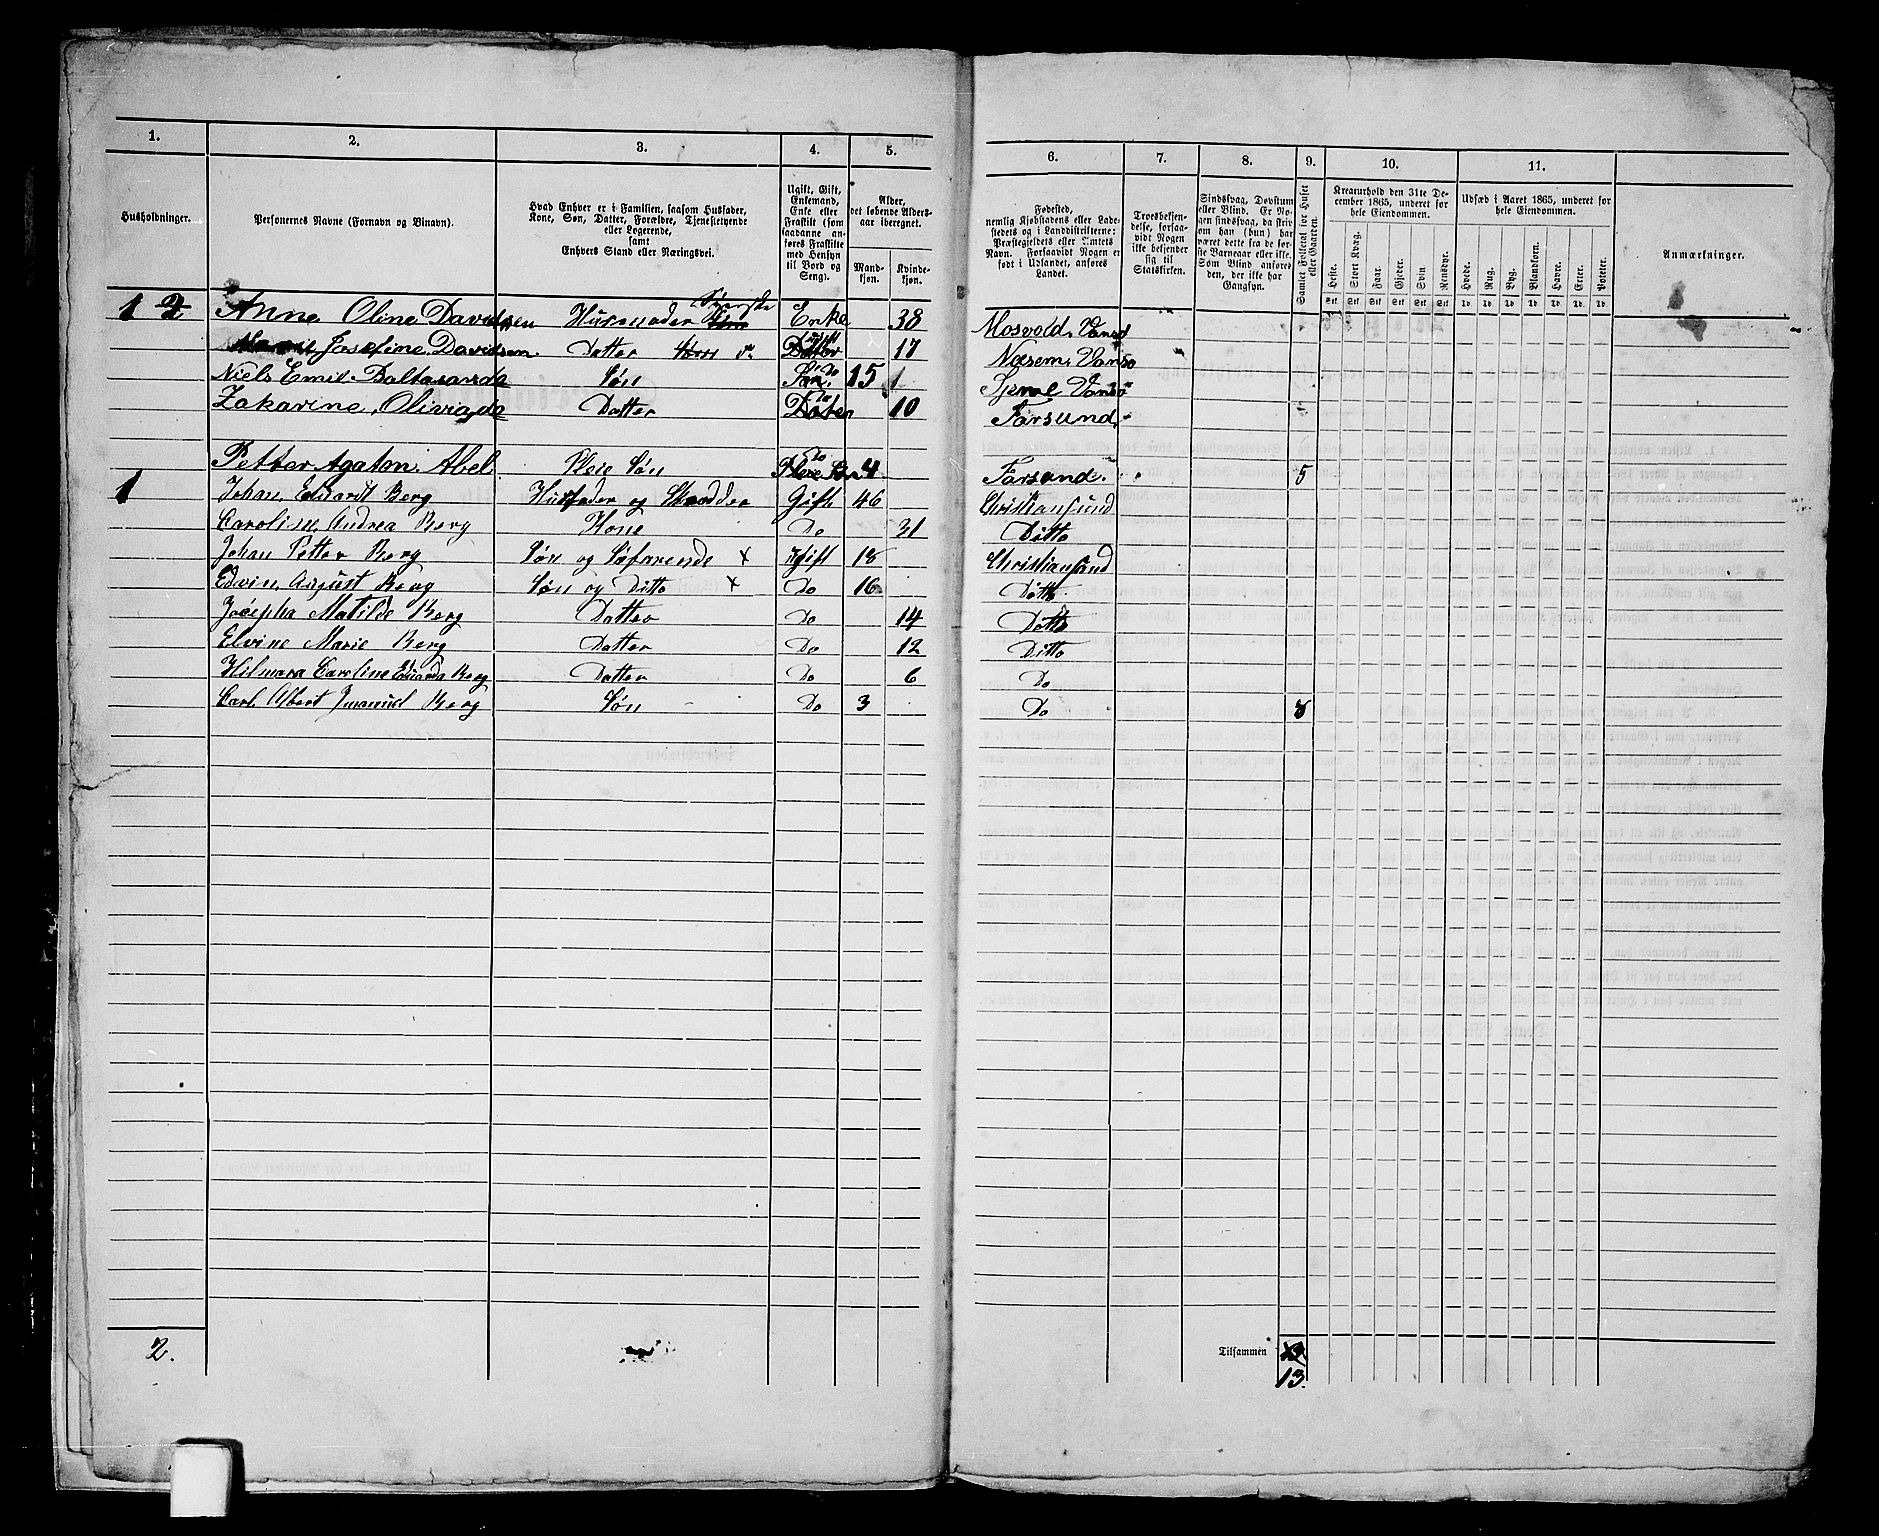 1. 2. 3. 4. 5. 6. 7. 8. 9. 10. 11.
Husholdninger.
Personernes Navne (Fornavn og Binavn).
Hvad Enhver er i Familien, saasom Husfader,
Kone, Søn, Datter, Forældre, Tjenestetyende
eller Logerende,
samt
Enhvers Stand eller Næringsvei.
Ugift, Gift,
Enkemand,
Enke eller
Fraskilt (som
saadanne an-
føres Fraskilte
med Hensyn
til Bord og
Seng).
Alder,
det løbende Alders-
aar iberegnet.
Mand-
kjøn.
Kvinde-
kjøn.
Fødested,
nemlig Kjøbstadens eller Lade-
stedets og i Landdistrikterne:
Præstegjeldets eller Amtets
Navn. Forsaavidt Nogen er
født i Udlandet, anføres
Landet.
Troesbekjen-
delse, forsaa-
vidt Nogen
ikke bekjender
sig til
Statskirken.
Sindssvag, Døvstum
eller Blind. Er No-
gen sindssvag, da skriv
om han (hun) har
været dette fra de før-
ste Barneaar eller ikke.
Som Blind anføres
den, der ikke har
Gangsyn.
Samlet Folketal for Huset
eller Gaarden.
Kreaturhold den 31te De-
cember 1865, underet for
hele Eiendommen.
Heste. Stort Kvæg. Faar. Gjeder. Svin Rensdyr.
Stk Stk Stk Stk Stk Stk
Udsæd i Aaret 1865, underet for
hele Eiendommen.
Hvede. Rug. Byg. Blandkorn. Havre. Erter. Poteter.
Td. Td. Td. Td. Td. Td. Td.
Anmærkninger.
1 2 Anne Oline Davidsen Husmoder Enke 38 Mosvold. Vansø
Josefine. Davidsen. Datter 17 Næsem. Vansø
Niels Emil Baltasar do Søn Do 15 Vansø
Zakarine, Olivia do Datter Do 10 Farsund.
Petter Agaton. Abel Pleie Søn Do 4 Farsund. 5
1 Johan Eduardt Berg Husfader og Skrædder Gift 46 Christiansund
Caroline Andrea Berg Kone Do 31 Ditto
Johan Petter Berg Søn og Søfarende x Ugift 18 Christiansand
Edvin August Berg Søn og Ditto x Do 16 Ditto
Josepha Matilde Berg Datter Do 14 Ditto
Elvine Marie Berg Datter Do 12 Ditto
Hilmara Caroline Eduarda Berg Datter Do 6 Do
Carl Albert Imanuel Berg Søn Do 3 Do 8
2.
Tilsammen
13.